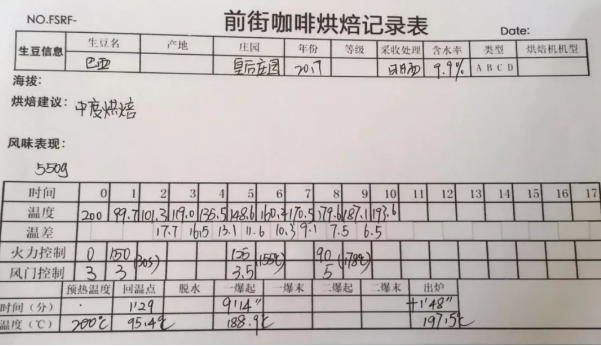 NO.FSRF- 前街咖啡烘焙记录表 Date:
生豆信息 生豆名 产地 庄园 年份 等级 采收处理 含水率 类型 烘焙机机型
巴西 皇后庄园 2017 日晒 9.9% A B C D
海拔:
烘焙建议: 中度烘焙
风味表现:
550g
时间 0 1 2 3 4 5 6 7 8 9 10 11 12 13 14 15 16 17
温度 200 99.7 101.3 119.0 135.5 148.6 160.2 170.5 179.6 187.1 193.6
温差 17.7 16.5 13.1 11.6 10.3 9.1 7.5 6.5
火力控制 0 150 155 90
风门控制 3 3 (30s) 3.5 5
预热温度 回温点 脱水 一爆起 一爆末 二爆起 二爆末 出炉
时间(分) 1'29 9'14" +1'48"
温度(℃) 200℃ 95.4℃ 188.9℃ 197.5℃